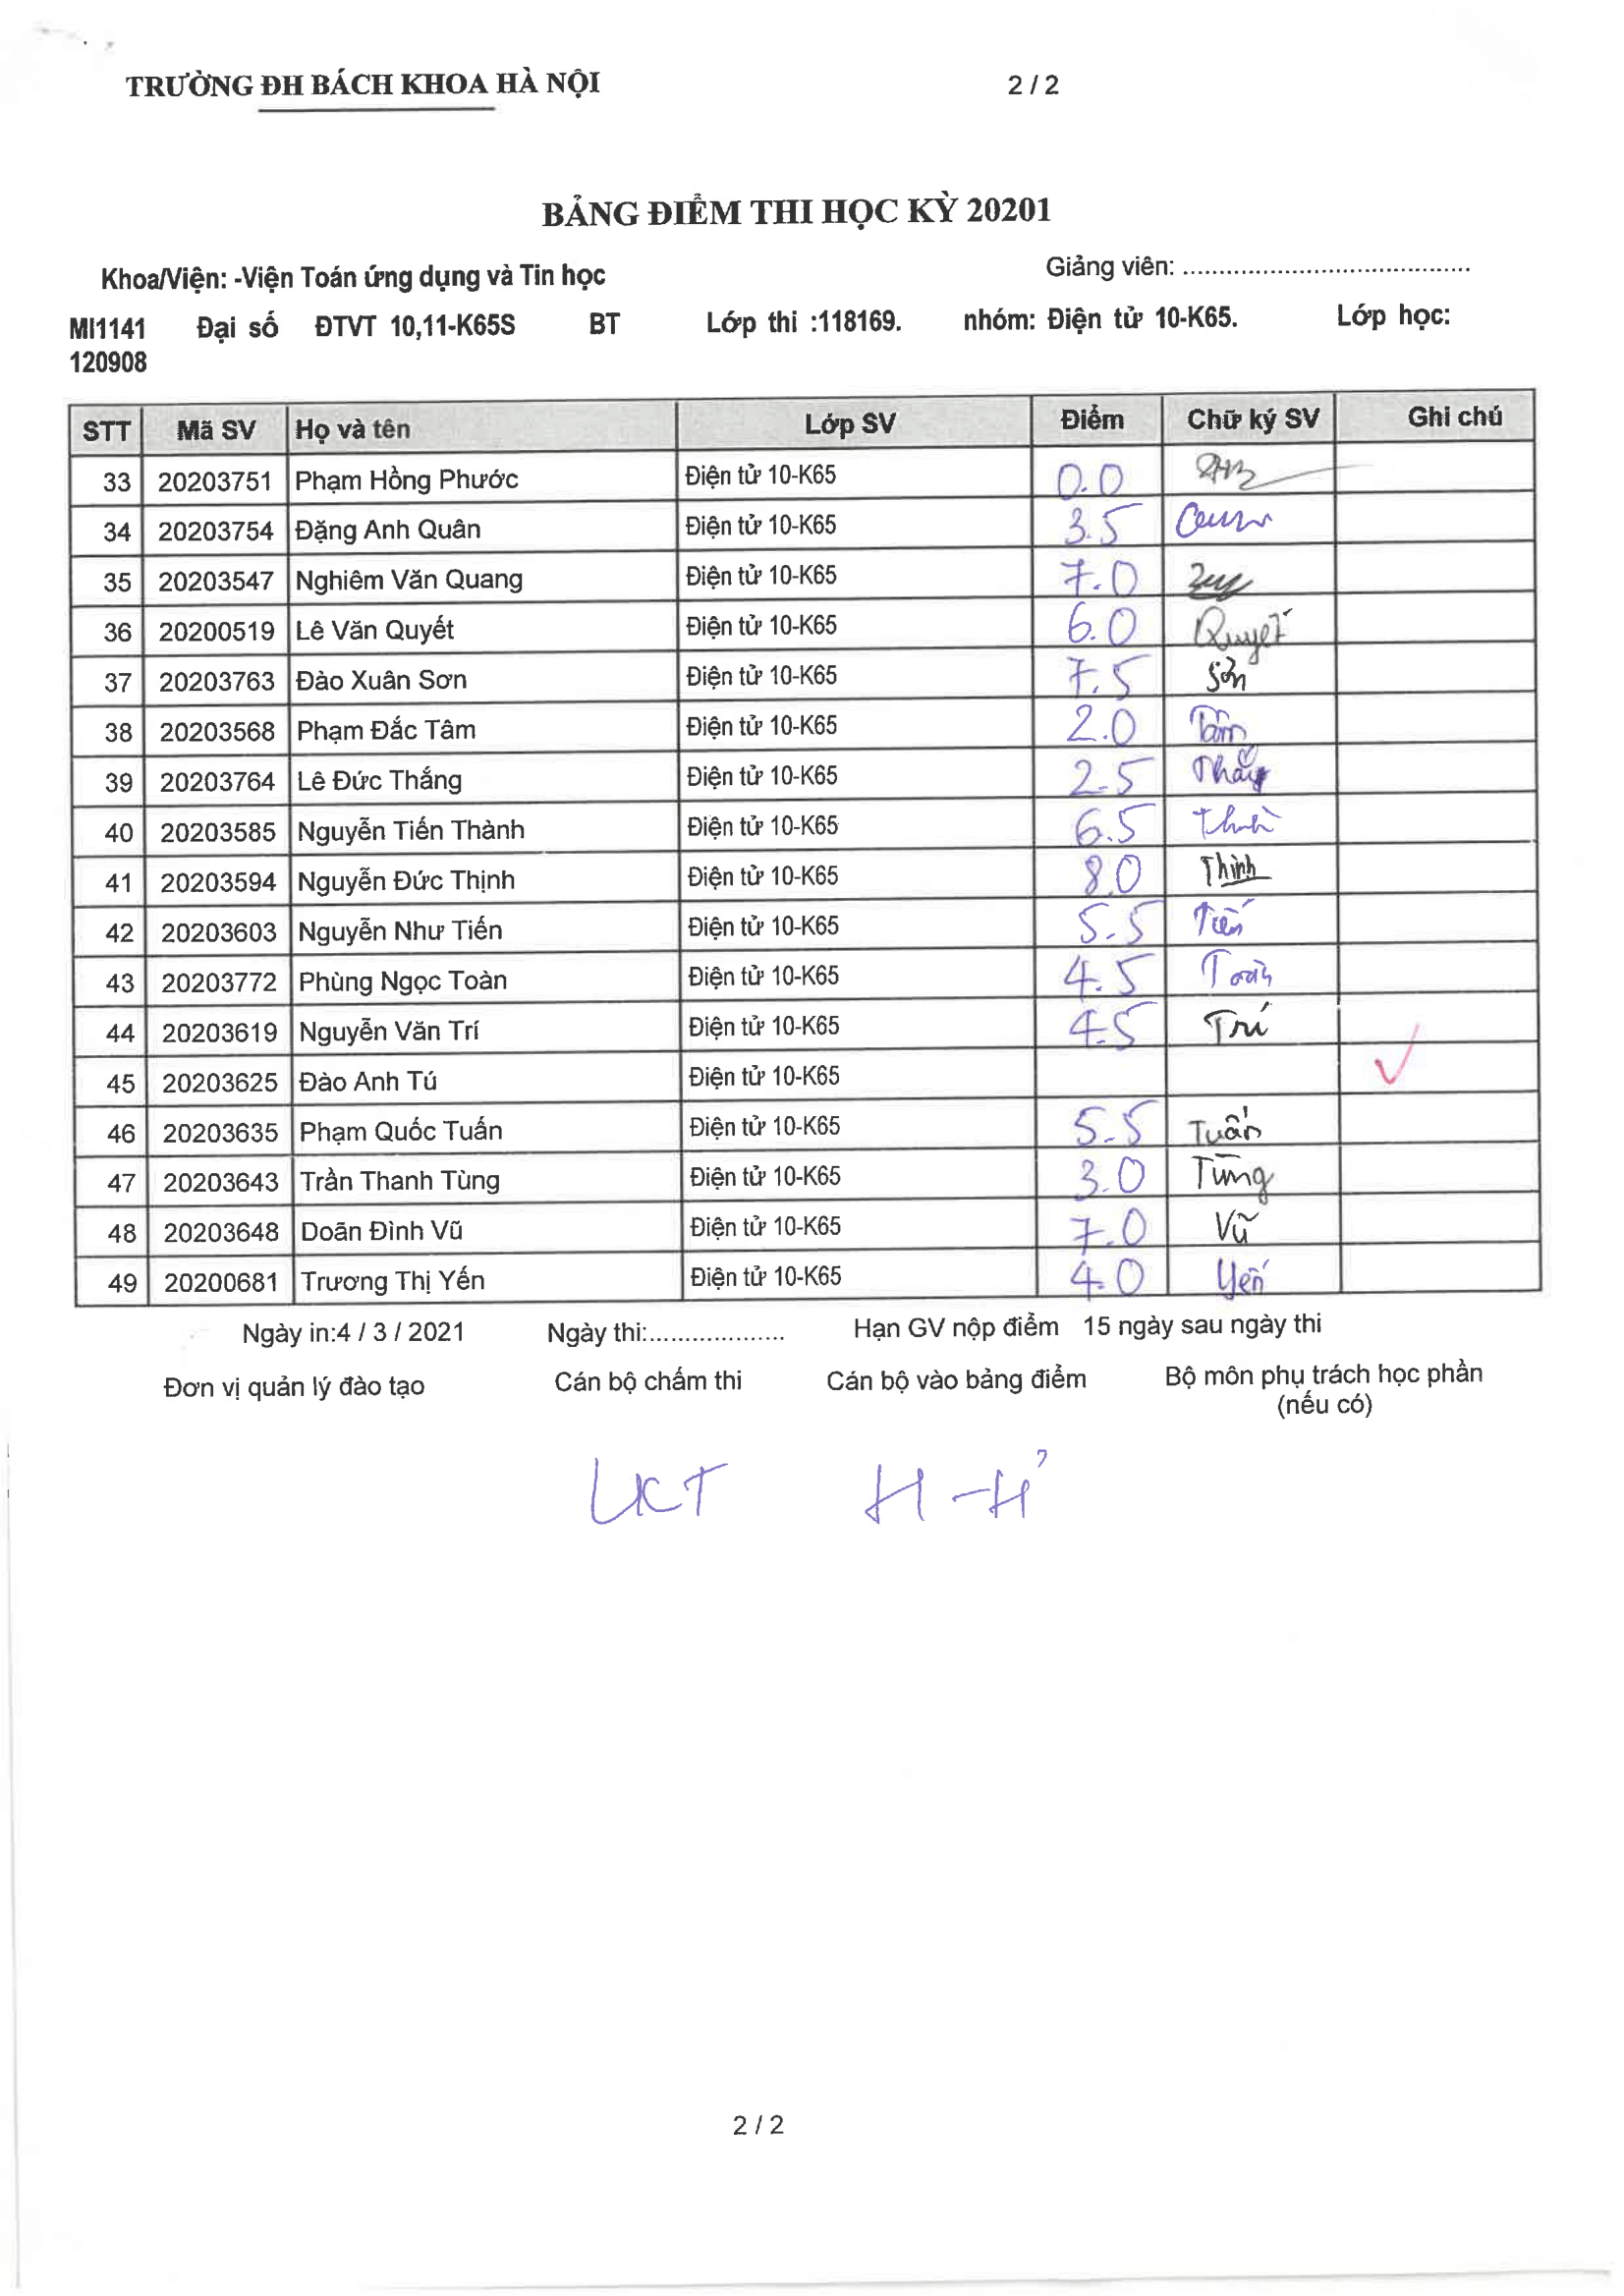 TRƯỜNG ĐH BÁCH KHOA HÀ NỘI 2 / 2
BẢNG ĐIỂM THI HỌC KỲ 20201
Khoa/Viện: -Viện Toán ứng dụng và Tin học Giảng viên: ........................................
MI1141 Đại số ĐTVT 10,11-K65S BT Lớp thi :118169. nhóm: Điện tử 10-K65. Lớp học:
120908
STT Mã SV Họ và tên Lớp SV Điểm Chữ ký SV Ghi chú
33 20203751 Phạm Hồng Phước Điện tử 10-K65 0.0
34 20203754 Đặng Anh Quân Điện tử 10-K65 3.5
35 20203547 Nghiêm Văn Quang Điện tử 10-K65 7.0
36 20200519 Lê Văn Quyết Điện tử 10-K65 6.0 Quyết
37 20203763 Đào Xuân Sơn Điện tử 10-K65 7.5 Sơn
38 20203568 Phạm Đắc Tâm Điện tử 10-K65 2.0 Tâm
39 20203764 Lê Đức Thắng Điện tử 10-K65 2.5 Thắng
40 20203585 Nguyễn Tiến Thành Điện tử 10-K65 6.5 Thành
41 20203594 Nguyễn Đức Thịnh Điện tử 10-K65 8.0 Thịnh
42 20203603 Nguyễn Như Tiến Điện tử 10-K65 5.5 Tiến
43 20203772 Phùng Ngọc Toàn Điện tử 10-K65 4.5 Toàn
44 20203619 Nguyễn Văn Trí Điện tử 10-K65 4.5 Trí
45 20203625 Đào Anh Tú Điện tử 10-K65 ✓
46 20203635 Phạm Quốc Tuấn Điện tử 10-K65 5.5 Tuấn
47 20203643 Trần Thanh Tùng Điện tử 10-K65 3.0 Tùng
48 20203648 Doãn Đình Vũ Điện tử 10-K65 7.0 Vũ
49 20200681 Trương Thị Yến Điện tử 10-K65 4.0 Yến
Ngày in:4 / 3 / 2021 Ngày thi:................... Hạn GV nộp điểm 15 ngày sau ngày thi
Đơn vị quản lý đào tạo Cán bộ chấm thi Cán bộ vào bảng điểm Bộ môn phụ trách học phần
(nếu có)
LKT
2 / 2